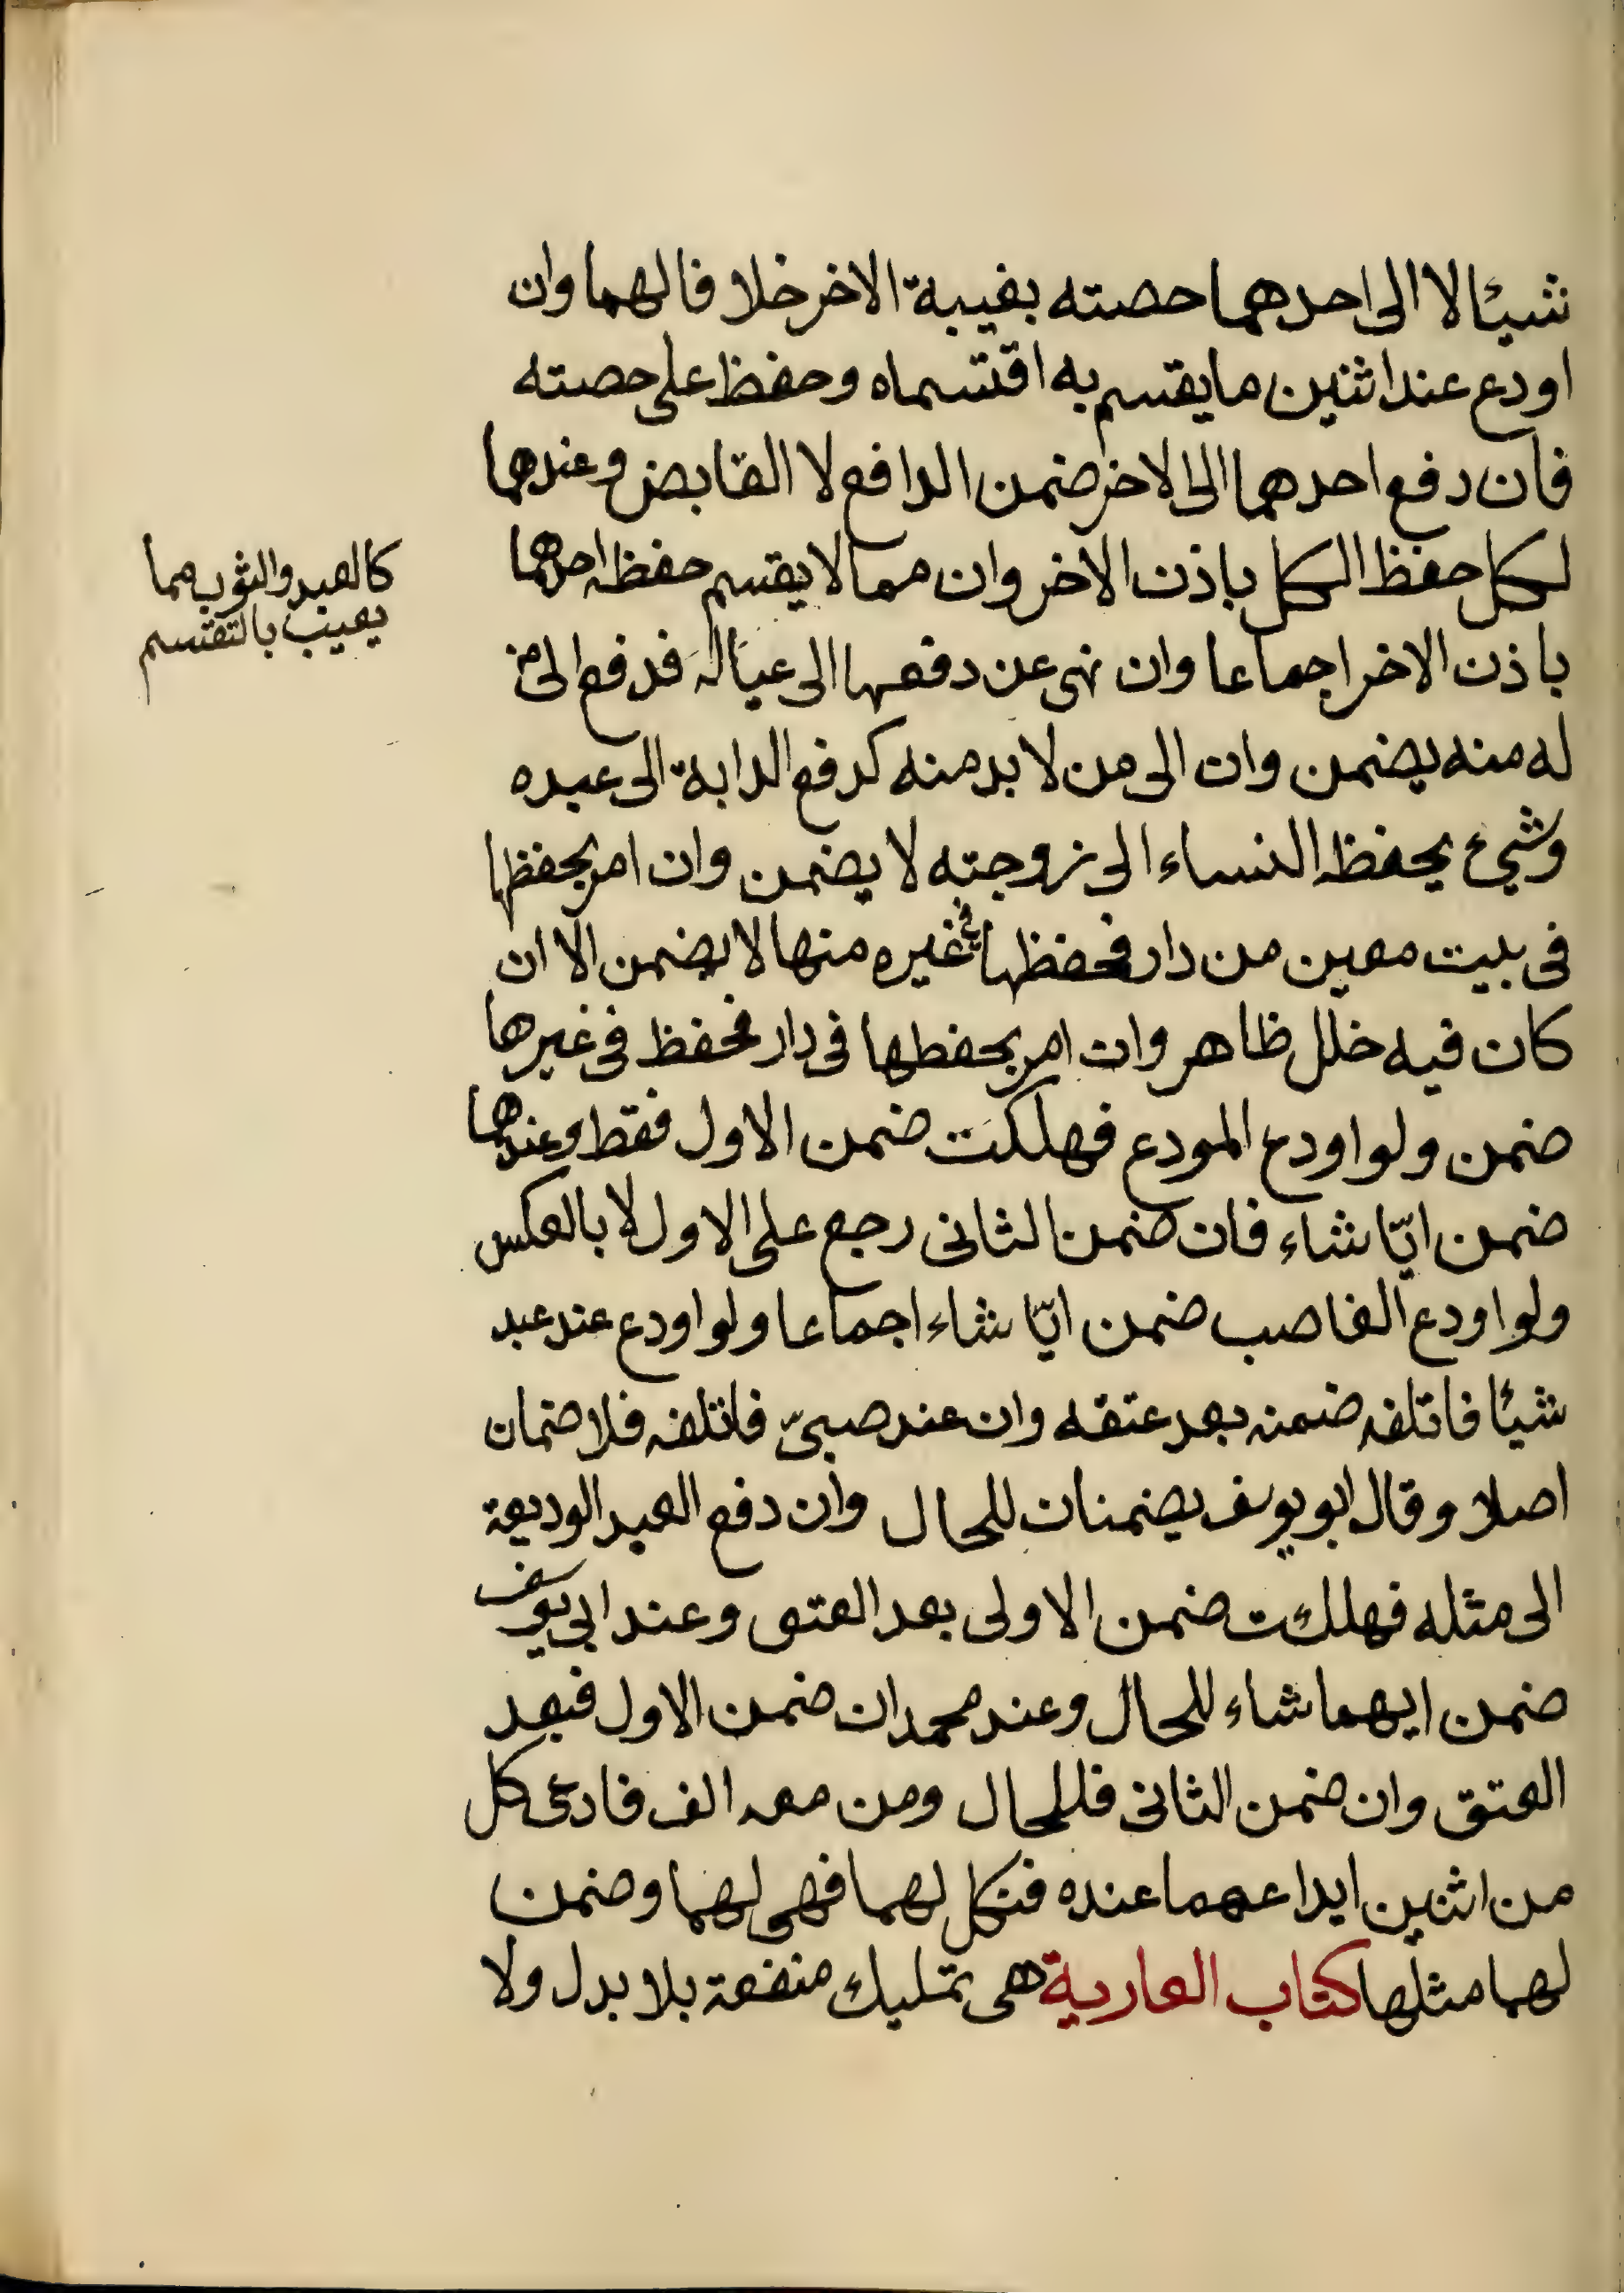 شيئا لا الى احدهما حصته بغيبة الاخر خلافا لهما وان
اودع عند اثنين ما يقسم به اقتسماه وحفظ على حصته
فان دفع احدهما الى الاخر ضمن الدافع لا القابض وعندهما
لكل حفظ الكل باذن الاخر وان مما لا يقسم حفظه احدهما
باذن الاخر اجماعا وان نهى عن دفعها الى عياله فدفع الى من
له منه يضمن وان الى من لا بد منه كدفع الدابة الى عبده
وشيء يحفظه النساء الى زوجته لا يضمن وان امر بحفظها
فى بيت معين من دار فحفظها فى غيره منها لا يضمن الا ان
كان فيه خلل ظاهر وان امر بحفظها فى دار فحفظ فى غيرها
ضمن ولو اودع المودع فهلكت ضمن الاول فقط وعندهما
ضمن ايّا شاء فان ضمن الثانى رجع على الاول لا بالعكس
ولو اودع الغاصب ضمن ايّا شاء اجماعا ولو اودع عند عبد
شيئا فاتلفه ضمنه بعد عتقه وان عند صبىّ فاتلفه فلا ضمان
اصلا وقال ابو يوسف يضمنان للحال وان دفع العبد الوديعة
الى مثله فهلكت ضمن الاولى بعد العتق وعند ابى يوسف
ضمن ايهما شاء للحال وعند محمد ان ضمن الاول فبعد
العتق وان ضمن الثانى فللحال ومن معه الف فادعى كل
من اثنين ايداعهما عنده فنكل لهما فهى لهما وضمن
لهما مثلها كتاب العارية هى تمليك منفعة بلا بدل ولا
كالعبد والثوب مما
يعيب بالتقسم